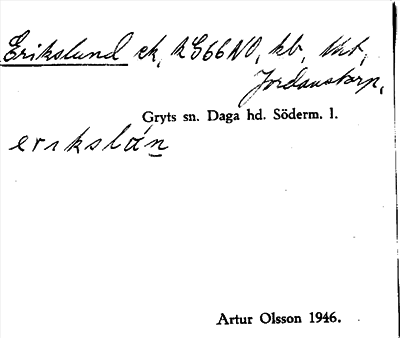 Erikslund ek, kb,
Jordanstorp,
Gryts sn. Daga hd. Söderm. l.
erikslán
Artur Olsson 1946.